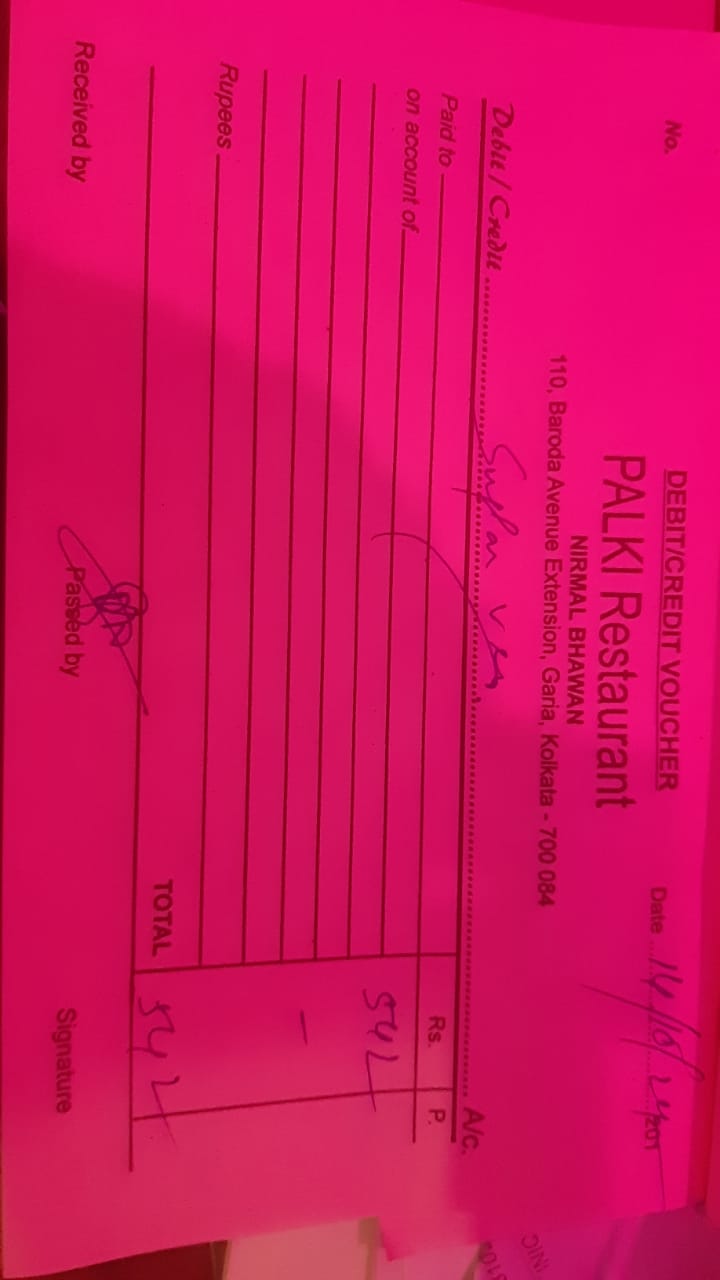 DEBIT/CREDIT VOUCHER
No.
Date 14/10/24 201
PALKI Restaurant
NIRMAL BHAWAN
110, Baroda Avenue Extension, Garia, Kolkata - 700 084
Debit / Credit A/c.
Paid to Rs. P.
on account of
542
-
Rupees
TOTAL 542
Received by Passed by Signature